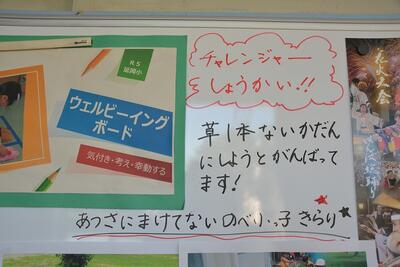 R5
延岡小
ウェルビーイング
ボード
気付き・考え・幸動する
チャレンジャー
しょうかい!!
草1本ないかだん
にしようとがんばって
ます!
あつさにまけてないのべりっ子きらり
大会